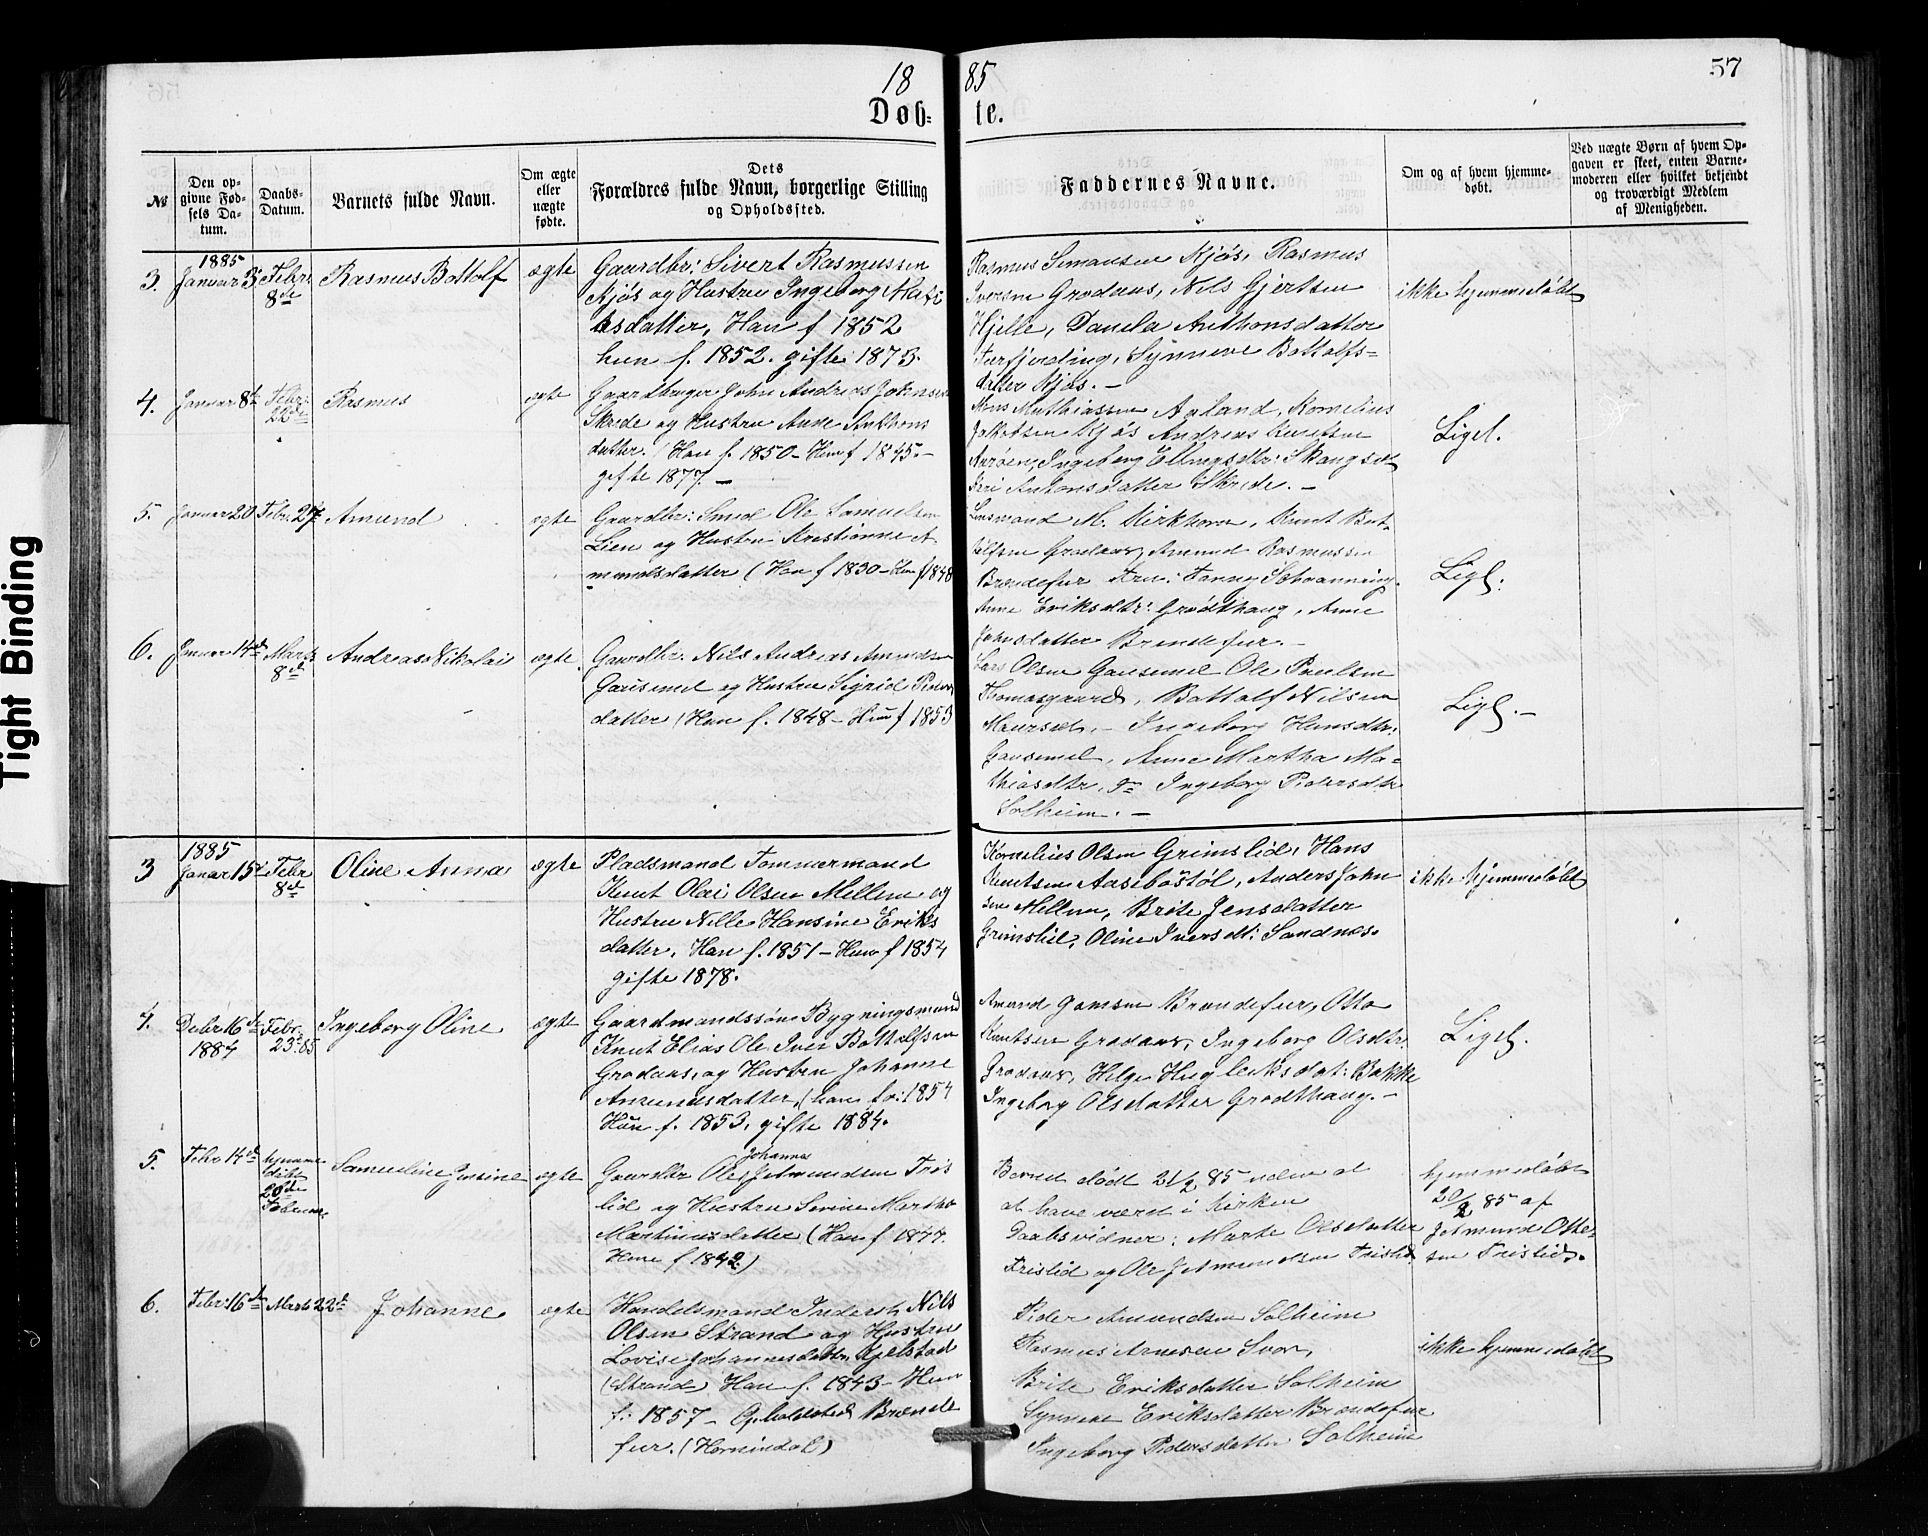 18 85
57
Døb- te.
Tight Binding
№
Den opgivne Fødsels Datum.
Daabs-Datum.
Barnets fulde Navn.
Om ægte eller uægte fødte.
Dets Forældres fulde Navn, borgerlige Stilling og Opholdssted.
Faddernes Navne.
Om og af hvem hjemmedøbt.
Ved uægte Børn af hvem Opgaven er skeet, enten Barnemoderen eller hvilket bekjendt og troværdigt Medlem af Menigheden.
3. 1885 Januar 3 Febr: 8de Rasmus Bottolf ægte
Gaardbr: Sivert Rasmussen
Kjøs og Hustru Ingeborg Mathi
asdatter, Han f 1852
hun f. 1852. gifte 1873.
Rasmus Simonsen Kjøs, Rasmus
Iversen Grodaas, Nils Gjertsen
Hjelle, Danela Anthonsdatter
Tarfjording, Synneve Bottolfs=
datter Kjøs. —
ikke hjemmedøbt
4. Januar 8de Febr: 22de Rasmus ægte
Gaardbruger John Andreas Johnsen
Skrede og Hustru Anne Anthons
datter. (Han f. 1850 – Hun f 1845. –
gifte 1877. —
Mons Mathiassen Aaland, Kornelius
Jakobsen Kjøs Andreas Knutsen
Ingeborg Ellingsdtr: Skaugset
Kari Antonsdatter Skrede. —
Ligel.
5. Januar 20 Febr. 27 Amund ægte
Gaardbr: Smed Ole Samuelsen
Lien og Hustru Kristianne A
mundsdatter (Han f 1830 – Hun f 1848
Lensmand M. Kirkhorn, Knut Bot
tolfsen Grodaas, Amund Rasmussen
Brændefur Fru: Fanny Schvanning.
Anne Eriksdtr: Grødthaug, Anne
Johnsdatter Brendefur. —
Ligl.
6. Januar 14de Marts 8de Andreas Nikolai ægte
Gaardbr. Nils Andreas Amundsen
Gausemel og Hustru Sigrid Peders
datter (Han f. 1848 – Hun f 1853
Lars Olsen Gausemel Ole Paulsen
Thomasgaard, Bottolf Nilsen
Maurset, – Ingeborg Hansdtr.
Gausemel, Anne Martha Ma=
thiasdtr. Ingeborg Pedersdtr
Solheim. —
Ligl. —
3 1885 Januar 15de Febr 8de Oline Anna ægte
Pladsmand Tømmermand
Knut Olai Olsen Mellem og
Hustru Nille Hansine Eriks
datter. Han f. 1851 – Hun f 1854
gifte 1878.
Kornelius Olsen Grimslid, Hans
Knutsen Aasebøstøl, Anders John
sen Mellem, Brite Jensdatter
Grimslid, Oline Iversdt: Sandnes.
ikke hjemmedøbt
4. Debr 16de 1884 Febr. 23. 85 Ingeborg Oline ægte
Gaardmandssøn Bygningsmand
Knut Elias Ole Iver Bottolfsen
Grodaas, og Hustru Johanne
Amundsdatter, (han fø: 1854
Hun f. 1853, gifte 1884.
Amund Jonsen Brændefur, Otto
Knutsen Grodaas, Ingeborg Olsdtr.
Grodaas, Helge Hugleiksdat: Bakke
Ingeborg Olsdatter Grodthaug. –
Ligel.
5. Febr 14de hjemme døbt 20de Februar Samueline Gurine ægte
Gaardbr Ole Johannes Jetmundsen Tris
lid og Hustru Sevine Martha
Martinusdatter (Han f 1844.
Hun f 1842.)
Barnet dødt 21/2 85 uden at
at have været i kirken
Daabsvidner: Marte Olsdatter
Trislid og Ole Jetmundsen Trislid
hjemmedøbt
20/2 85 af
Jetmund Otte-
sen Trislid.
6. Febr: 16de Marts 22de Johanne ægte
Handelsmand Inderst, Nils
Olsen Strand og Hustru
Lovise Johannesdatter Kjelstad
(Strand) Han f. 1843 – Hun
f: 1857 – Opholdsted Brænde
fur. (Hornindal)
Peder Amundsen Solheim
Rasmus Arnesen Svor,
Brite Eriksdatter Solheim
Synneve Eriksdatter Brændefur
Ingeborg Pedersdatter Solheim
ikke hjemmedøbt